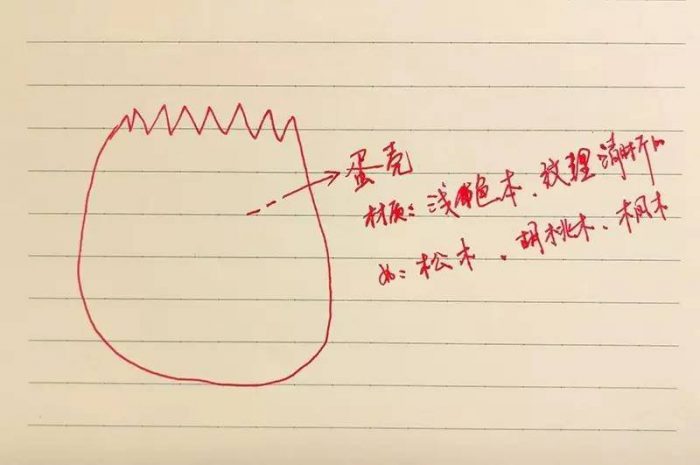 蛋壳
材质：浅色木、纹理清晰的
如：松木、胡桃木、枫木